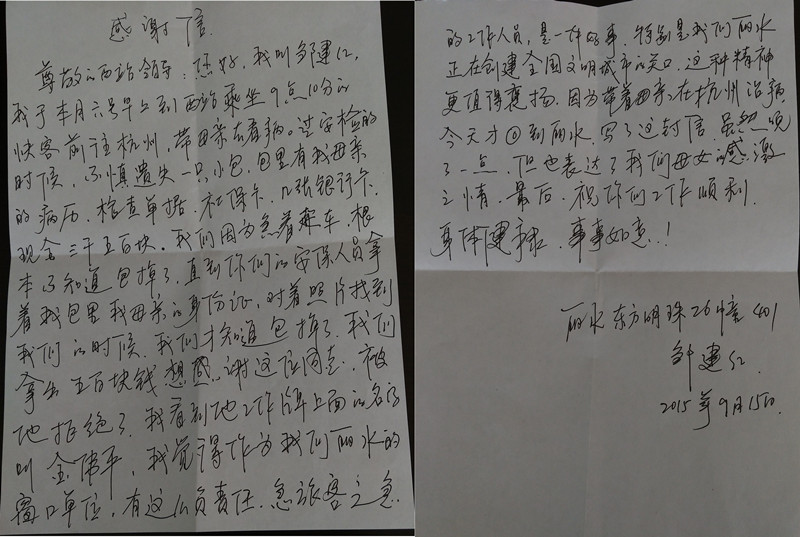 感谢信
尊敬的西站领导：您好，我叫邹建红，
我于本月六号早上到西站乘坐9点10分的
快客前往杭州，带母亲去看病。过安检的
时候，不慎遗失一只小包，包里有我母亲
的病历、检查单据、社保卡、几张银行卡、
现金三千五百块，我们因为急着乘车，根
本不知道包掉了，直到你们的安保人员拿
着我包里我母亲的身份证，对着照片找到
我们的时候，我们才知道包掉了，我们
拿出五百块钱想感谢这位同志，被
他拒绝了，我看到他工作牌上面的名字
叫金伟平，我觉得作为我们丽水的
窗口单位，有这么负责任、急旅客之急
的工作人员，是一件好事，特别是我们丽水
正在创建全国文明城市的关口，这种精神
更值得褒扬，因为带着母亲在杭州治病
今天才回到丽水，写了这封信虽然晚
了一点，但也表达了我们母女的感激
之情，最后，祝你们工作顺利，
身体健康、事事如意！
丽水东方明珠26幢401
邹建红
2015年9月15日